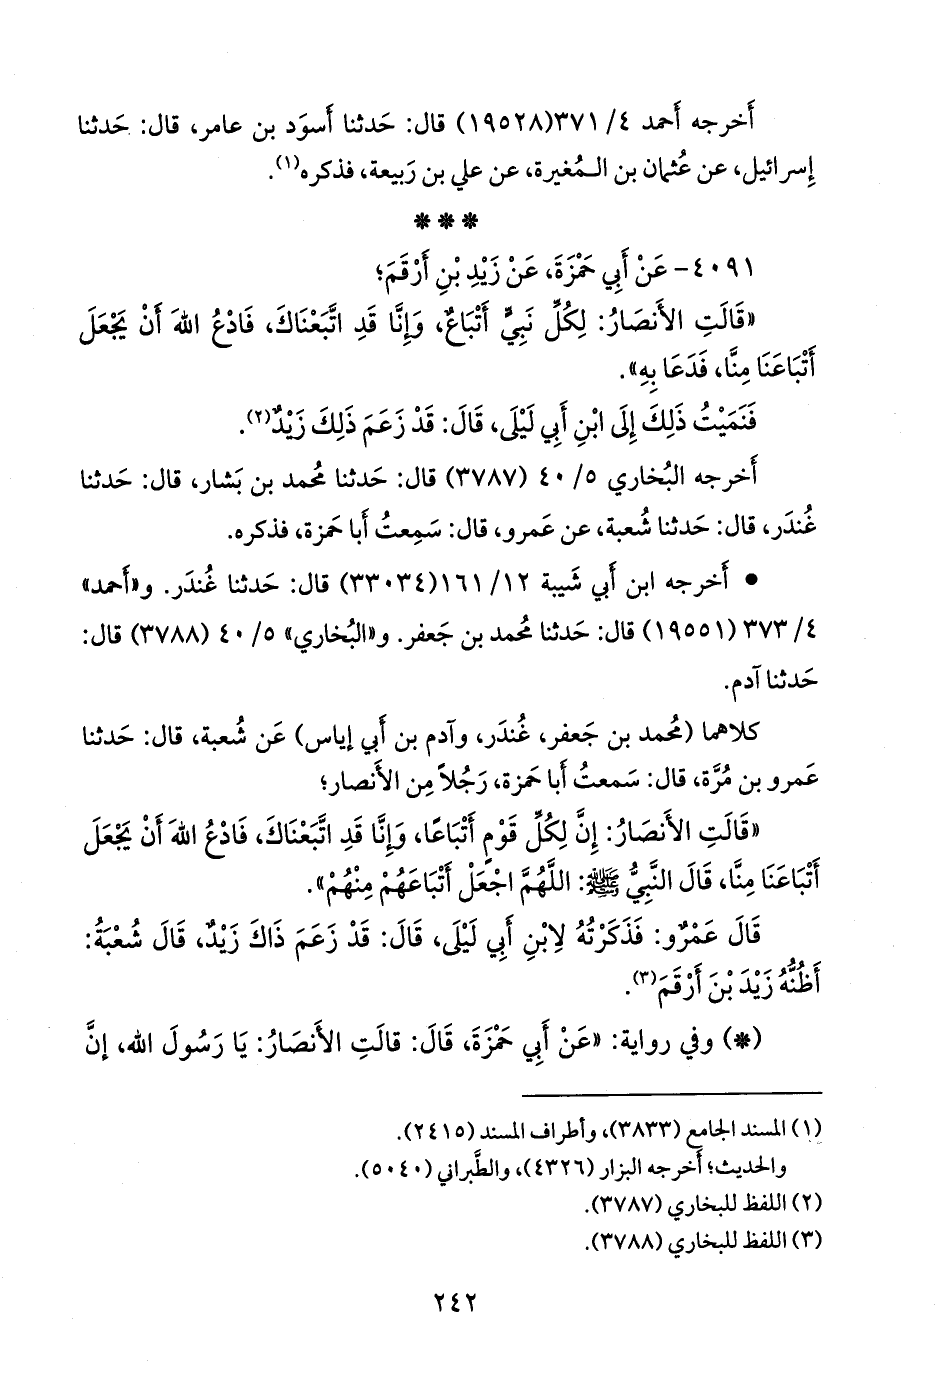 أَخرجه أَحمد ٤/ ٣٧١(١٩٥٢٨) قال: حَدثنا أَسوَد بن عامر، قال: حَدثنا
إِسرائيل، عن عُثمان بن الـمُغيرة، عن علي بن رَبيعة، فذكره(١).
* * *
٤٠٩١- عَنْ أَبِي حَمْزَةَ، عَنْ زَيْدِ بْنِ أَرْقَمَ؛
«قَالَتِ الأَنصَارُ: لِكُلِّ نَبِيٍّ أَتْبَاعٌ، وَإِنَّا قَدِ اتَّبَعْنَاكَ، فَادْعُ اللهَ أَنْ يَجْعَلَ
أَتْبَاعَنَا مِنَّا، فَدَعَا بِهِ».
فَنَمَيْتُ ذَلِكَ إِلَى ابْنِ أَبِي لَيْلَى، قَالَ: قَدْ زَعَمَ ذَلِكَ زَيْدٌ(٢).
أَخرجه البُخاري ٥/ ٤٠ (٣٧٨٧) قال: حَدثنا مُحمد بن بَشار، قال: حَدثنا
غُندَر، قال: حَدثنا شُعبة، عن عَمرو، قال: سَمِعتُ أَبا حَمزة، فذكره.
• أَخرجه ابن أَبي شَيبة ١٢/ ١٦١(٣٣٠٣٤) قال: حَدثنا غُندَر. و«أَحمد»
٤/ ٣٧٣ (١٩٥٥١) قال: حَدثنا مُحمد بن جَعفر. و«البُخاري» ٥/ ٤٠ (٣٧٨٨) قال:
حَدثنا آدم.
كلاهما (مُحمد بن جَعفر، غُندَر، وآدم بن أَبي إياس) عَن شُعبة، قال: حَدثنا
عَمرو بن مُرَّة، قال: سَمعتُ أَبا حَمزة، رَجُلاً مِن الأَنصار؛
«قَالَتِ الأَنصَارُ: إِنَّ لِكُلِّ قَوْمٍ أَتْبَاعًا، وَإِنَّا قَدِ اتَّبَعْنَاكَ، فَادْعُ اللهَ أَنْ يَجْعَلَ
أَتْبَاعَنَا مِنَّا، قَالَ النَّبِيُّ ﷺ: اللَّهُمَّ اجْعَلْ أَتْبَاعَهُمْ مِنْهُمْ».
قَالَ عَمْرٌو: فَذَكَرْتُهُ لاِبْنِ أَبِي لَيْلَى، قَالَ: قَدْ زَعَمَ ذَاكَ زَيْدٌ، قَالَ شُعْبَةُ:
أَظُنُّهُ زَيْدَ بْنَ أَرْقَمَ(٣).
(*) وفي رواية: «عَنْ أَبِي حَمْزَةَ، قَالَ: قالَتِ الأَنصَارُ: يَا رَسُولَ الله، إِنَّ
(١) المسند الجامع (٣٨٣٣)، وأطراف المسند (٢٤١٥).
والحديث؛ أخرجه البزار (٤٣٢٦)، والطَّبراني (٥٠٤٠).
(٢) اللفظ للبخاري (٣٧٨٧).
(٣) اللفظ للبخاري (٣٧٨٨).
٢٤٢